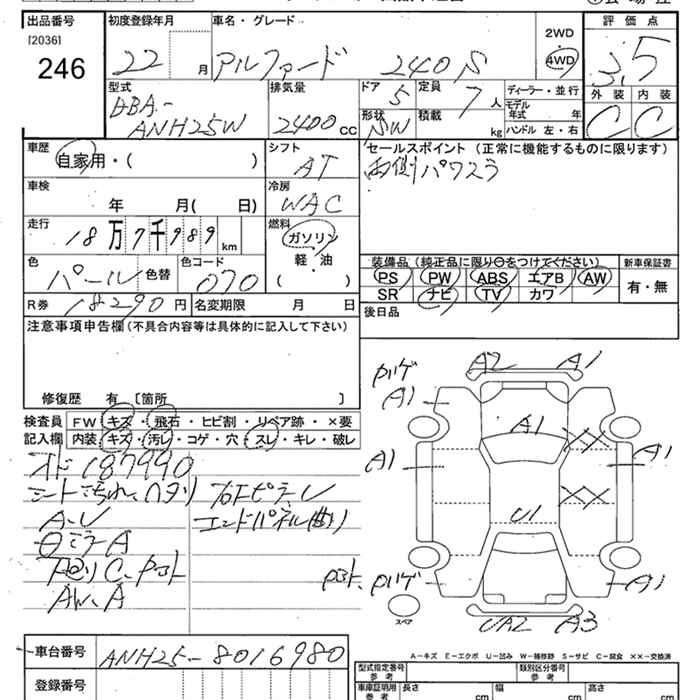 出品番号
[2036]
246
初度登録年月
22 月
車名・グレード
アルファード 240S
2WD
4WD
評価点
3.5
外装 内装
C C
型式
DBA-
ANH25W
排気量
2400 CC
ドア 5
定員 7 人
形状 SW
積載 kg
ディーラー・並行
モデル年式 年
ハンドル 左・右
車歴
自家用・( )
シフト
AT
セールスポイント (正常に機能するものに限ります)
両側パワスラ
車検
年 月( 日)
冷房
WAC
走行
18万7千989 km
燃料
ガソリン
軽・油
( )
色
パール 色替
色コード
070
装備品 (純正品に限り○をつけてください)
新車保証書
PS PW ABS エアB AW
SR ナビ TV カワ
有・無
R券 18290円 名変期限 月 日
後日品
注意事項申告欄 (不具合内容等は具体的に記入して下さい)
修復歴 有 [箇所 ]
検査員記入欄
FW キズ・飛石・ヒビ割・リペア跡・×要
内装 キズ・汚レ・コゲ・穴・スレ・キレ・破レ
オド187990
シート汚れ、ヘタリ
A・U
日ミラーA
下廻りC、
AW、A
エンドパネル曲り
A2 A1
A1
A1
A1
XX
A1
XX
U1
A1
UA2 A3
スペア
A―キズ E―エクボ U―凹み W―補修跡 S―サビ C―腐食 ××―交換済
車台番号 ANH25-8016980
登録番号
型式指定番号
参考
類別区分番号
参考
車庫証明用
参考
長さ cm
幅 cm
高さ cm